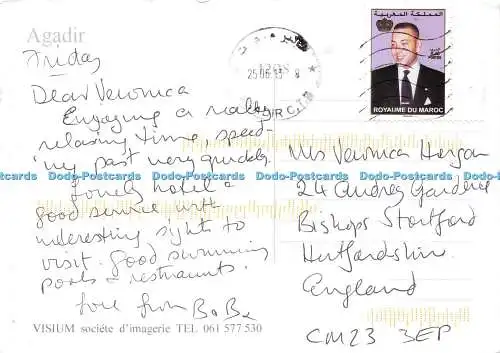 Agadir
Friday
Dear Veronica
Enjoying a really
relaxing time, speed-
ing past very quickly.
Lovely hotel &
good service with
interesting sights to
visit. Good swimming
pools & restraunts.
love from B & B
VISIUM société d'imagerie TEL 061 577 530
25 06 13 8
المملكة المغربية
ROYAUME DU MAROC
Mrs Veronica
24 Audrey Gardens
Bishops Stortford
Hertfordshire
England
CM23 3EP
Dodo-Postcards Dodo-Postcards Dodo-Postcards Dodo-Postcards Dodo-Postcards